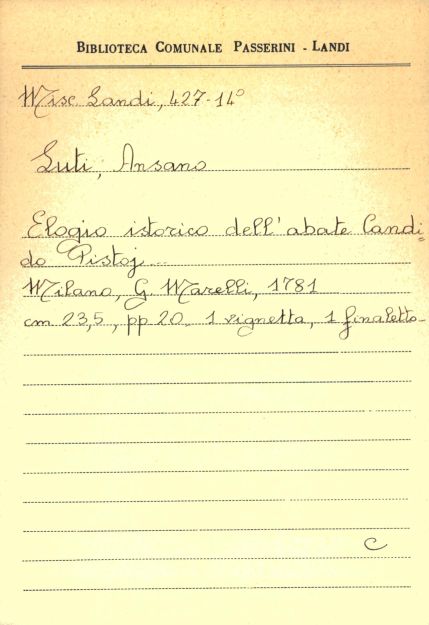 BIBLIOTECA COMUNALE PASSERINI - LANDI
Misc. Landi, 427-14°
Luti, Ansano
Elogio istorico dell'abate Candi=
do Pistoj...
Milano, G. Marelli, 1781
cm 23,5, pp 20. 1 vignetta, 1 finaletto
C